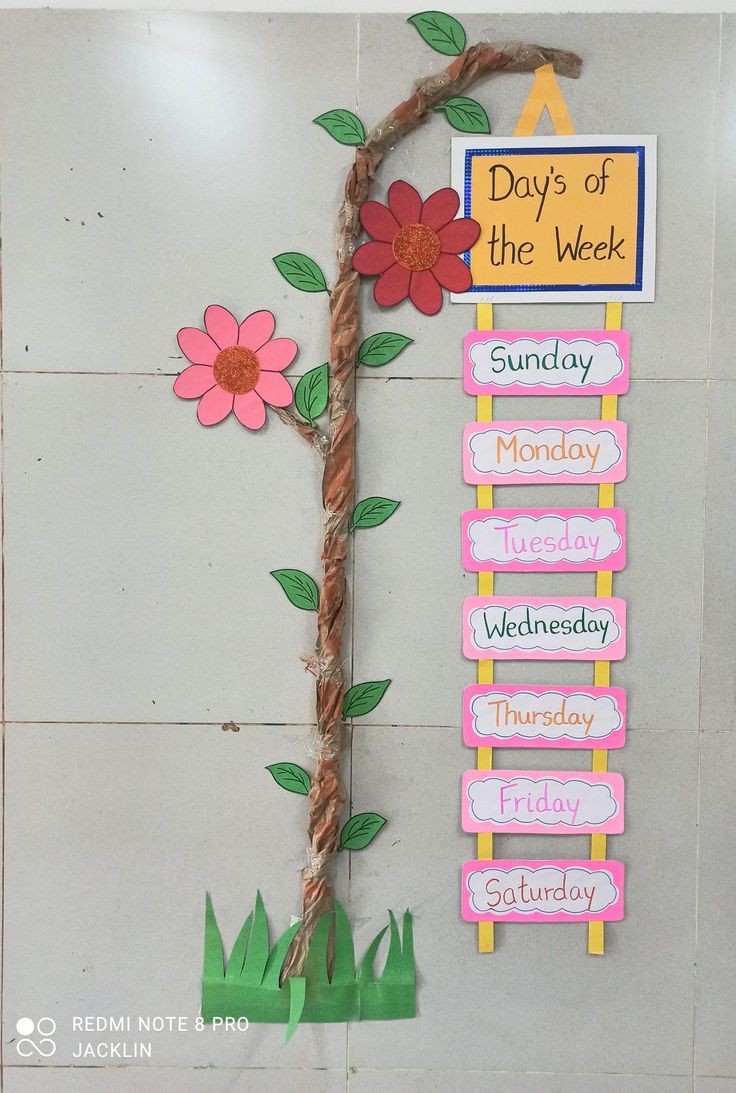 Day's of
the Week
Sunday
Monday
Tuesday
Wednesday
Thursday
Friday
Saturday
REDMI NOTE 8 PRO
JACKLIN